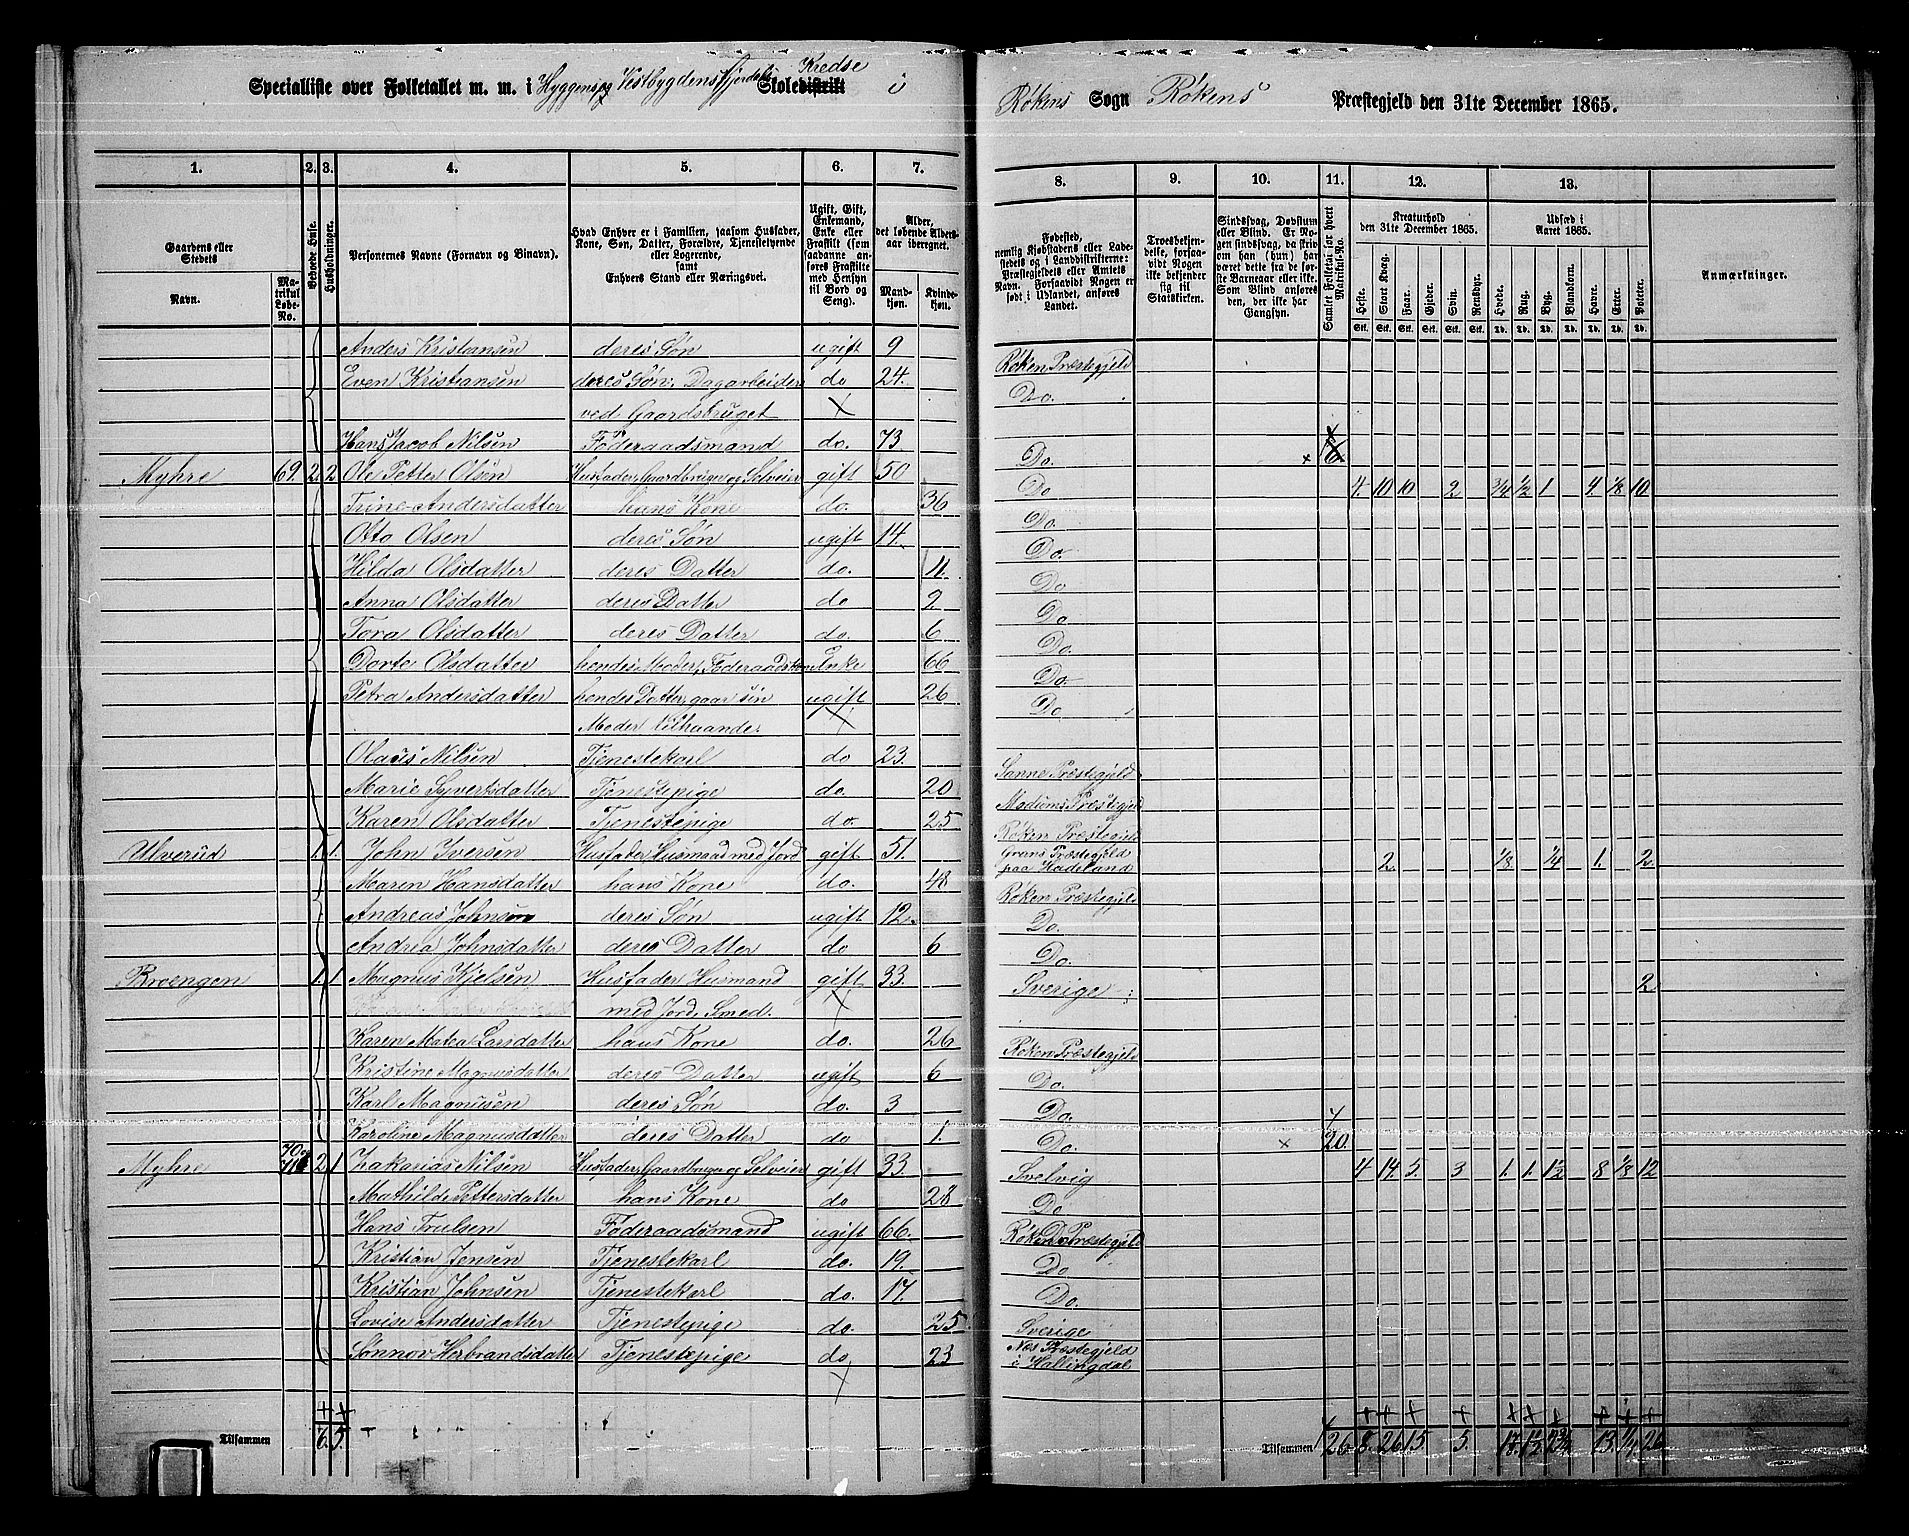 Specialliste over Folketallet m. m. i Hyggens og Vestbygdens Fjerdels Kredse Skoledistrikt i
Røkens Sogn Røkens Præstegjeld den 31te December 1865.
1. 2. 3. 4. 5. 6. 7. 8. 9. 10. 11. 12. 13.
Gaardens eller Stedets
Navn. Matrikul Løbe-No.
Beboede Huse.
Husholdninger.
Personernes Navne (Fornavn og Binavn).
Hvad Enhver er i Familien, saasom Husfader, Kone, Søn, Datter, Forældre, Tjenestetyende eller Logerende, samt Enhvers Stand eller Næringsvei.
Ugift, Gift, Enkemand, Enke eller Fraskilt (som saadanne anføres Fraskilte med Hensyn til Bord og Seng).
Alder, det løbende Alders-aar iberegnet.
Mandkjøn. Kvindekjøn.
Fødested, nemlig Kjøbstadens eller Ladestedets og i Landdistrikterne: Præstegjeldets eller Amtets Navn. Forsaavidt Nogen er født i Udlandet, anføres Landet.
Troesbekjendelse, forsaavidt Nogen ikke bekjender sig til Statskirken.
Sindssvag, Døvstum eller Blind. Er Nogen sindssvag, da hvorvidt
Samlet Folketal for hvert Matrikul-No.
Kreaturhold den 31te December 1865.
Heste. Stort Kvæg. Faar. Gjeder. Svin. Rensdyr.
Udsæd i Aaret 1865.
Hvede. Rug. Byg. Blandkorn. Havre. Erter. Poteter.
Anmærkninger.
Anders Kristiansen deres Søn ugift 9 Røken Præstegjeld
Even Kristiansen deres Søn, Dagarbeider do 24. Do.
ved Gaardsbruget
Hans Jacob Nilsen Føderaadsmand do. 73 Do.
Myhre 69. 2. 2 Ole Petter Olsen Husfader, Gaardbruger og Selveier gift 50 Do 4. 10 10 2 3/4 1/2 1 4. 1/8 10.
Trine Andersdatter hans Kone do. 36 Do.
Otto Olsen deres Søn ugift 14. Do.
Hilda Olsdatter deres Datter do. 11. Do
Anna Olsdatter deres Datter do 2 Do
Tora Olsdatter deres Datter do. 6 Do.
Dorte Olsdatter hendes Moder, Føderaadskone Enke 66 Do.
Petra Andersdatter hendes Datter, gaar sin ugift 26 Do
Moder tilhaande.
Olaus Nilsen Tjenestekarl do 23. Sanne Præstegjeld
Marie Syversdatter Tjenestepige do. 20 Modums Præstegjeld
Karen Olsdatter Tjenestepige do. 25 Røken Præstegjeld
Ulverud 1. 1. John Iversen Husfader Husmand med Jord gift 51. Grans Præstegjeld paa Hadeland 2. 1/8 1/4 1. 2.
Maren Hansdatter hans Kone do. 48 Røken Præstegjeld
Andreas Johnsen deres Søn ugift 12. Do.
Andrea Johnsdatter deres Datter do 6 Do.
Broengen 1. 1 Magnus Kjelsen Husfader Husmand gift 33. Sverige 2
med Jord, Smed.
Karen Matea Larsdatter hans Kone do. 26 Røken Præstegjeld
Kristine Magnusdatter deres Datter ugift 6 Do.
Karl Magnusen deres Søn do. 3 Do.
Karoline Magnusdatter deres Datter do 1. Do. 20.
Myhre 70 og 71 2. 1 Zakarias Nilsen Husfader, Gaardbruger og Selveier gift 33 Svelvig 4. 14. 5. 3 1. 1. 1 1/2 8 1/8 12
Mathilde Pettersdatter hans Kone do 28 Do.
Hans Trulsen Føderaadsmand ugift 66. Røken Præstegjeld
Kristian Jensen Tjenestekarl do. 19. Do
Kristian Johnsen Tjenestekarl do. 17. Do.
Lovise Andersdatter Tjenestepige do. 25 Sverige
Sønnov Herbrandsdatter Tjenestepige do 23 Nes Præstegjeld i Hallingdal
Tilsammen 6. 5.
Tilsammen 26 8. 26 15. 5. 13. 26